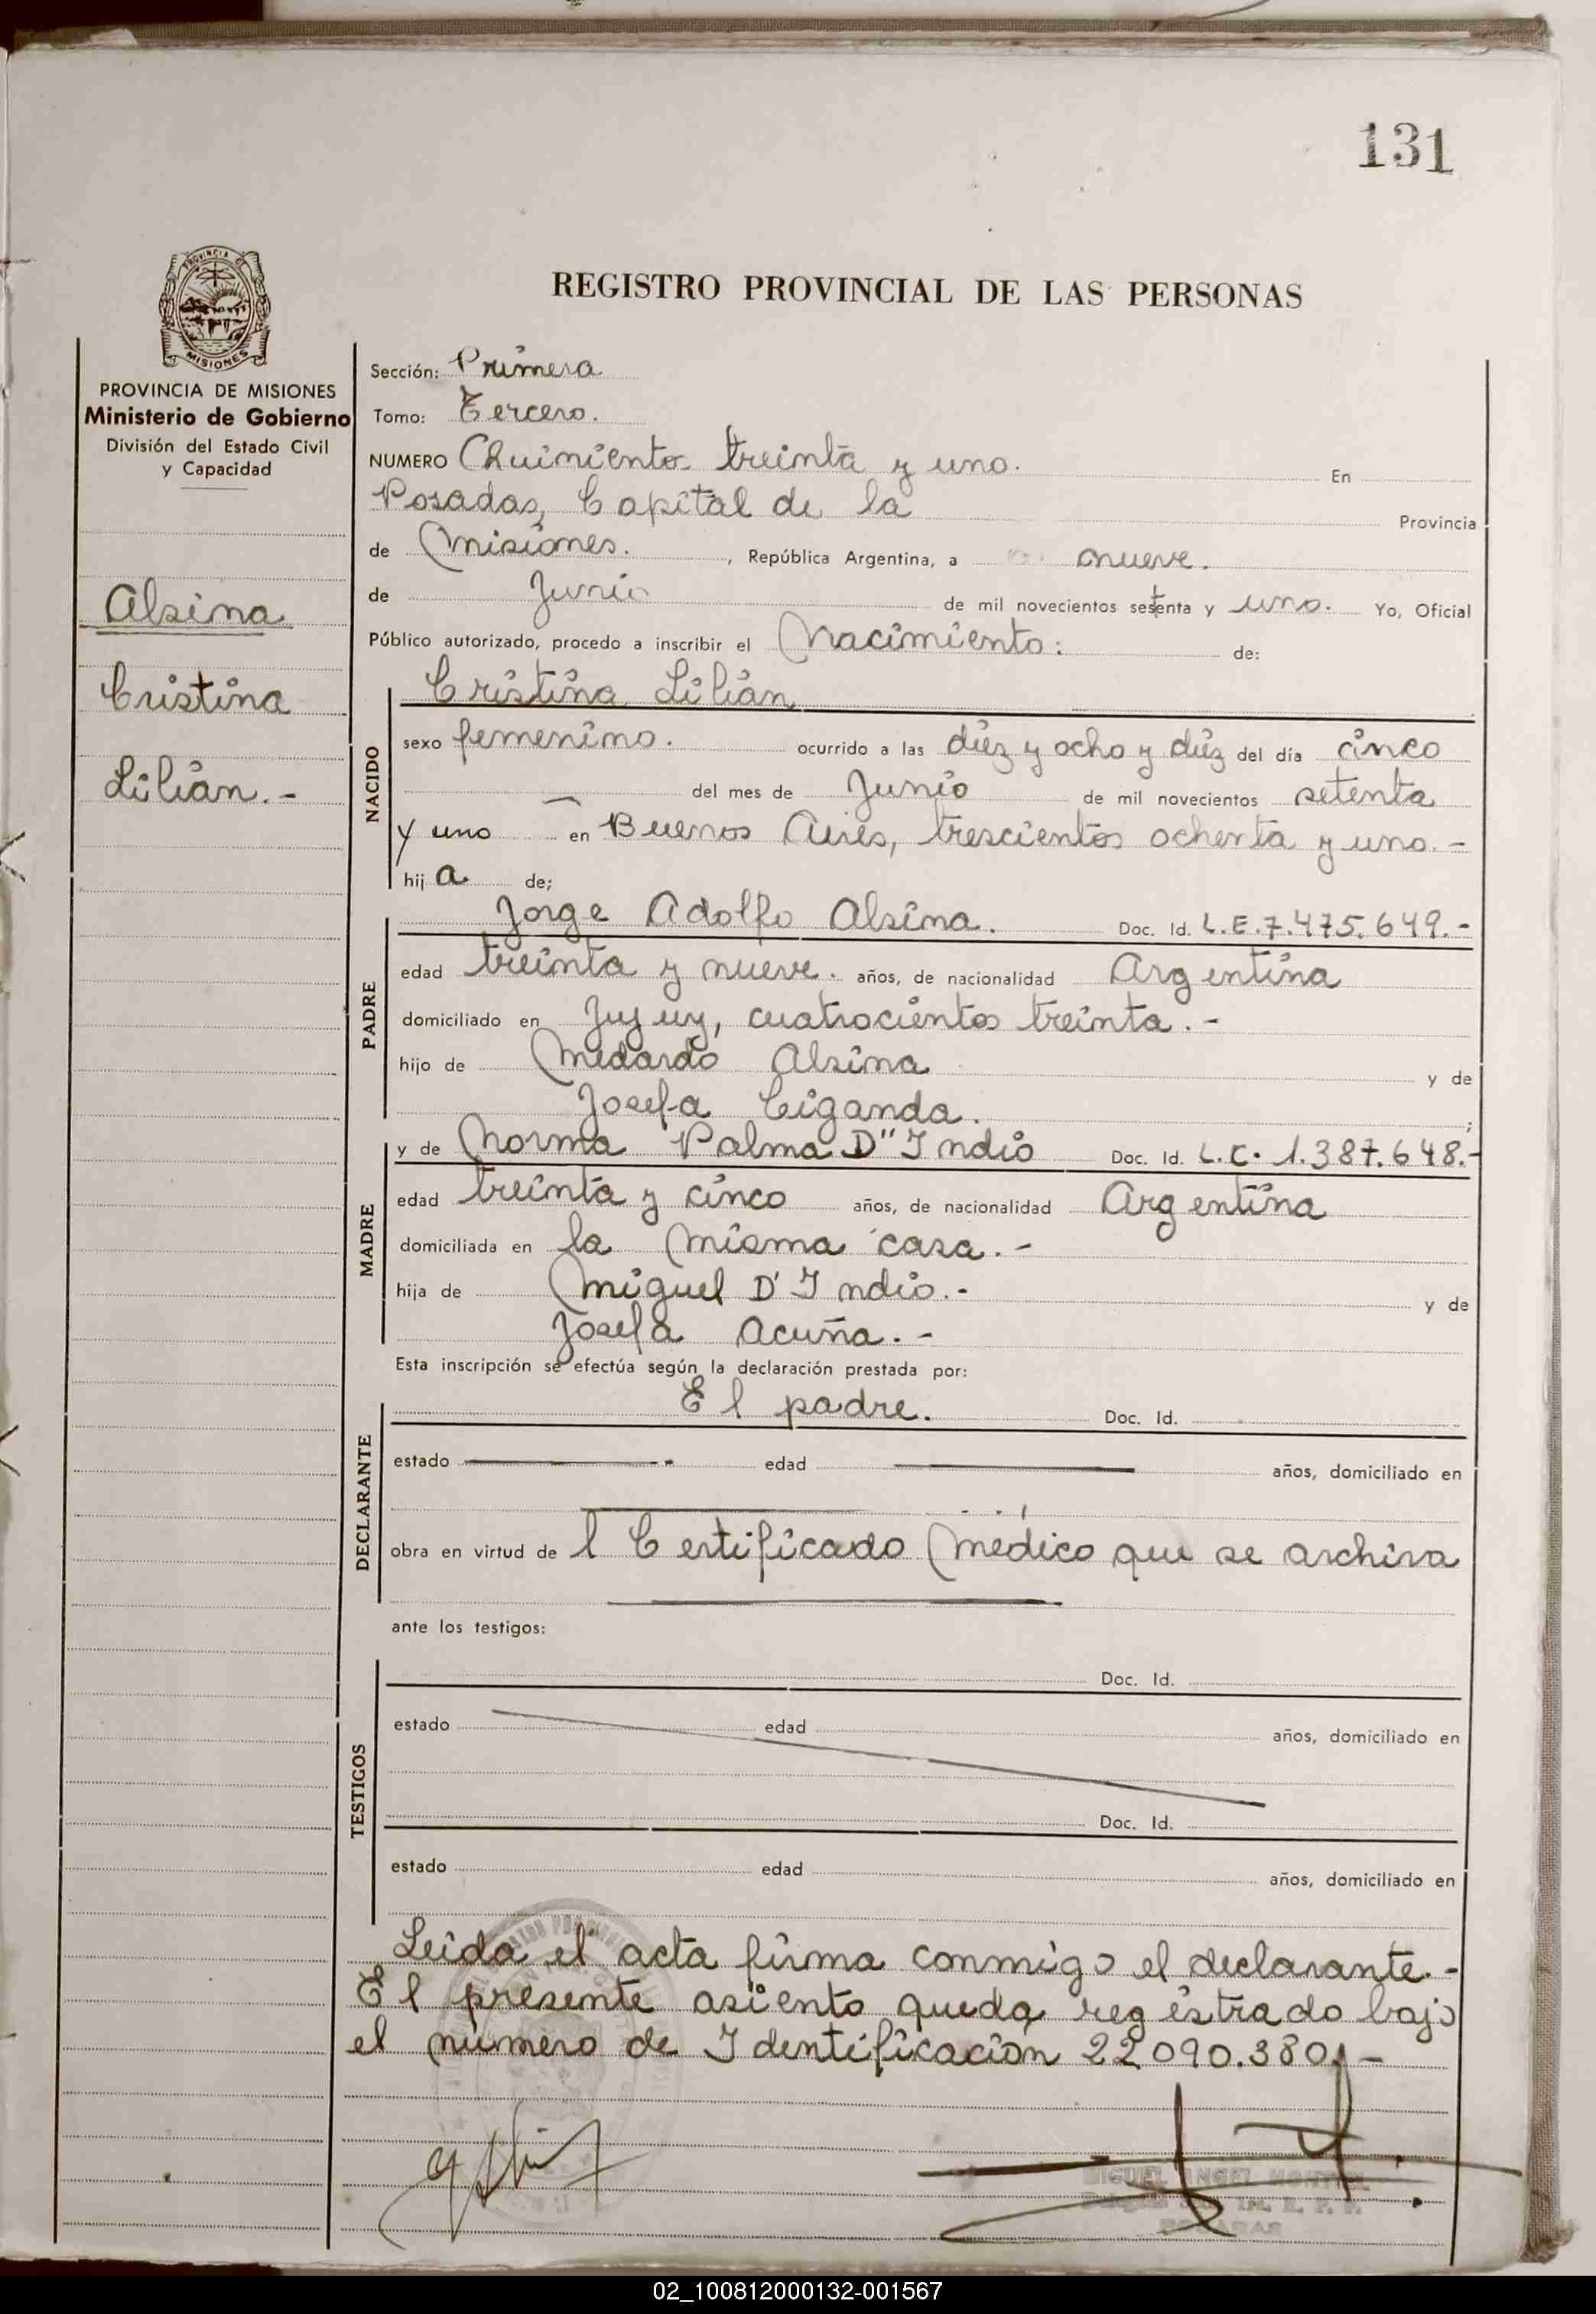 131
PROVINCIA DE
MISIONES
PROVINCIA DE MISIONES
Ministerio de Gobierno
División del Estado Civil
y Capacidad
Alsina
Cristina
Lilián.-
REGISTRO PROVINCIAL DE LAS PERSONAS
Sección: Primera
Tomo: Tercero.
NUMERO Quinientos treinta y uno. En
Posadas, Capital de la Provincia
de Misiones. , República Argentina, a nueve.
de Junio de mil novecientos setenta y uno. Yo, Oficial
Público autorizado, procedo a inscribir el Nacimiento: de:
NACIDO
Cristina Lilián
sexo femenino. ocurrido a las diez y ocho y diez del día cinco
del mes de Junio de mil novecientos setenta
y uno en Buenos Aires, trescientos ochenta y uno.-
hij a de;
PADRE
Jorge Adolfo Alsina. Doc. Id. L.E.7.475.649.-
edad treinta y nueve. años, de nacionalidad Argentina
domiciliado en Jujuy, cuatrocientos treinta.-
hijo de Medardo Alsina y de
Josefa Ciganda. ;
MADRE
y de Norma Palma D" Indio Doc. Id. L.C. 1.387.648.-
edad treinta y cinco años, de nacionalidad Argentina
domiciliada en la misma casa.-
hija de Miguel D' Indio.- y de
Josefa Acuña.-
Esta inscripción se efectúa según la declaración prestada por:
DECLARANTE
El padre. Doc. Id.
estado edad años, domiciliado en
obra en virtud de l Certificado médico que se archiva
ante los testigos:
TESTIGOS
Doc. Id.
estado edad años, domiciliado en
Doc. Id.
estado edad años, domiciliado en
Leida el acta firma conmigo el declarante.-
El presente asiento queda registrado bajo
el número de Identificación 22090.380.-
MIGUEL ANGEL
POSADAS
02_100812000132-001567